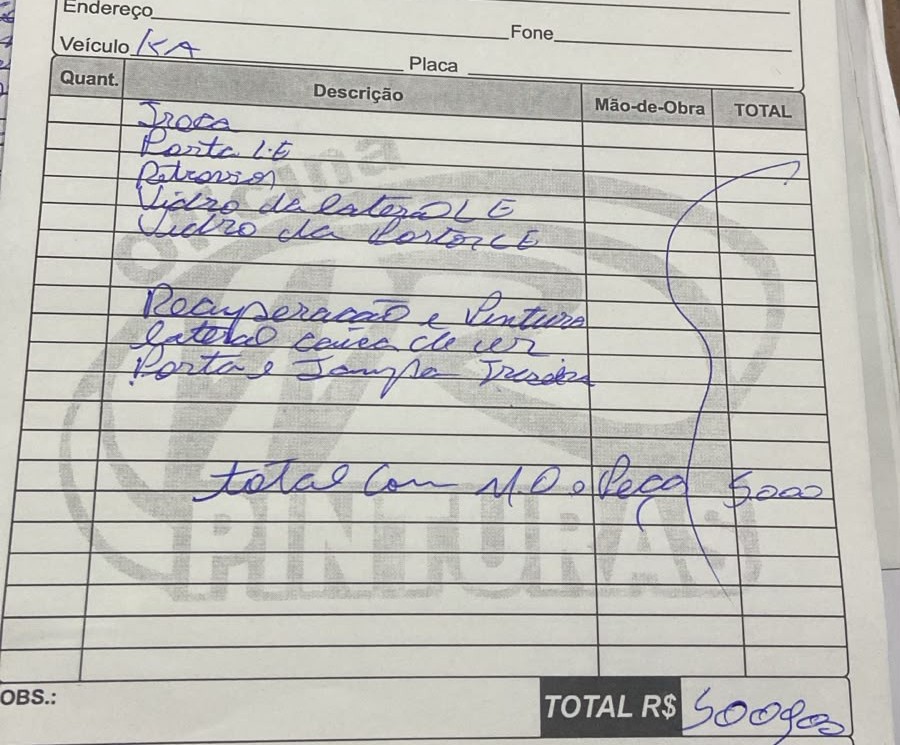 Endereço
Fone
Veículo KA
Placa
Quant. Descrição Mão-de-Obra TOTAL
Troca
Porta L.E
Retrovisor
Vidro da lateral L E
Vidro da Porta LE
Recuperação e Pintura
lateral caixa de
Porta e Tampa Traseira
total com M.O e Peça 5.000
oficina
PINTURAS
OBS.:
TOTAL R$ 5000,00